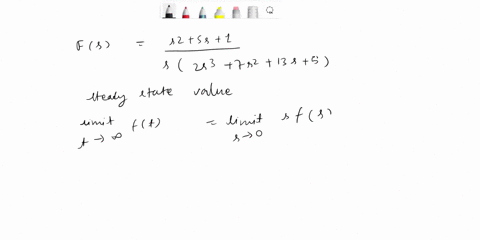 F(s) = s2+5s+1 / s(2s³+7s²+13s+5)
steady state value
limit t→∞ f(t) = limit s→0 s f(s)